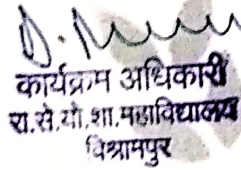 कार्यक्रम अधिकारी
रा.से.यो.शा.महाविद्यालय
विश्रामपुर